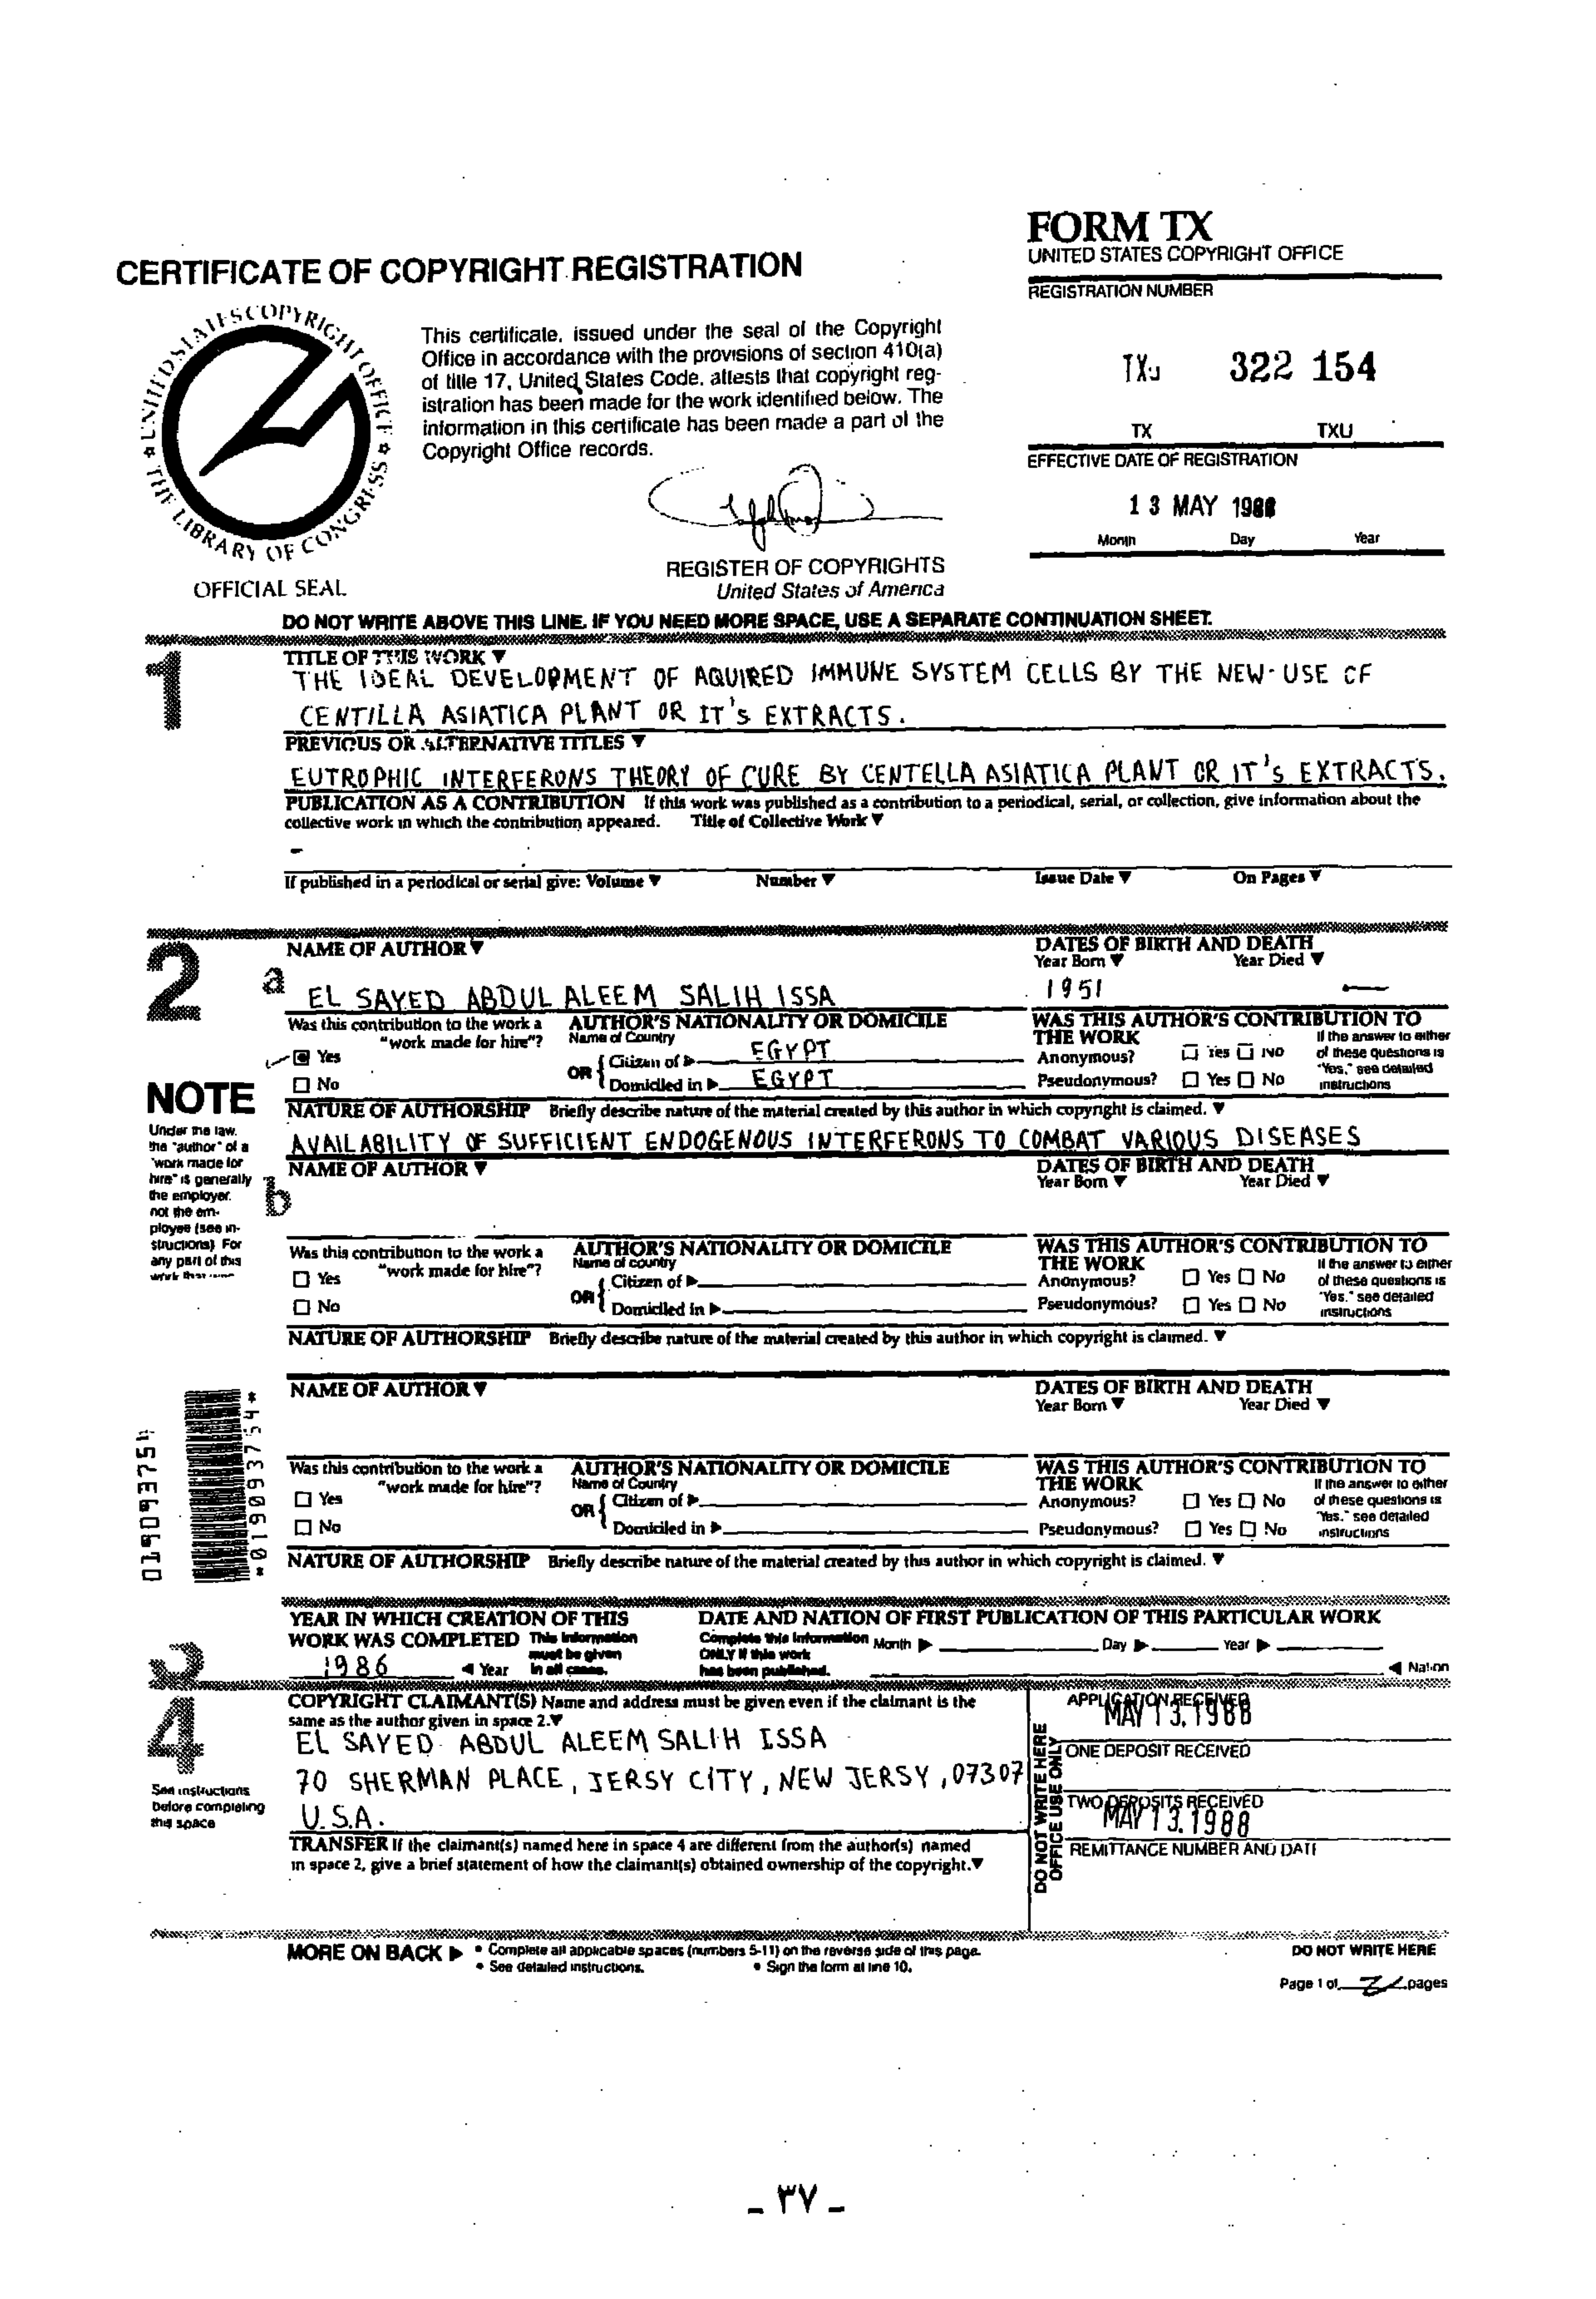 FORM TX
UNITED STATES COPYRIGHT OFFICE
CERTIFICATE OF COPYRIGHT REGISTRATION
REGISTRATION NUMBER
UNITED STATES COPYRIGHT OFFICE
THE LIBRARY OF CONGRESS
OFFICIAL SEAL
This certificate, issued under the seal of the Copyright
Office in accordance with the provisions of section 410(a)
of title 17, United States Code, attests that copyright reg-
istration has been made for the work identified below. The
information in this certificate has been made a part of the
Copyright Office records.
REGISTER OF COPYRIGHTS
United States of America
TXu 322 154
TX TXU
EFFECTIVE DATE OF REGISTRATION
13 MAY 1988
Month Day Year
DO NOT WRITE ABOVE THIS LINE. IF YOU NEED MORE SPACE, USE A SEPARATE CONTINUATION SHEET.
1
TITLE OF THIS WORK ▼
THE IDEAL DEVELOPMENT OF AQUIRED IMMUNE SYSTEM CELLS BY THE NEW-USE OF
CENTILLA ASIATICA PLANT OR IT's EXTRACTS.
PREVIOUS OR ALTERNATIVE TITLES ▼
EUTROPHIC INTERFERONS THEORY OF CURE BY CENTELLA ASIATICA PLANT OR IT's EXTRACTS.
PUBLICATION AS A CONTRIBUTION If this work was published as a contribution to a periodical, serial, or collection, give information about the
collective work in which the contribution appeared. Title of Collective Work ▼
-
If published in a periodical or serial give: Volume ▼ Number ▼ Issue Date ▼ On Pages ▼
2
a
NAME OF AUTHOR ▼
EL SAYED ABDUL ALEEM SALIH ISSA
DATES OF BIRTH AND DEATH
Year Born ▼ Year Died ▼
1951 —
Was this contribution to the work a
"work made for hire"?
Yes
No
AUTHOR'S NATIONALITY OR DOMICILE
Name of Country
OR { Citizen of ▶ EGYPT
Domiciled in ▶ EGYPT
WAS THIS AUTHOR'S CONTRIBUTION TO
THE WORK
Anonymous? Yes No
Pseudonymous? Yes No
If the answer to either
of these questions is
"Yes," see detailed
instructions
NATURE OF AUTHORSHIP Briefly describe nature of the material created by this author in which copyright is claimed. ▼
AVAILABILITY OF SUFFICIENT ENDOGENOUS INTERFERONS TO COMBAT VARIOUS DISEASES
NOTE
Under the law,
the "author" of a
"work made for
hire" is generally
the employer,
not the em-
ployee (see in-
structions) For
any part of this
b
NAME OF AUTHOR ▼
DATES OF BIRTH AND DEATH
Year Born ▼ Year Died ▼
Was this contribution to the work a
"work made for hire"?
Yes
No
AUTHOR'S NATIONALITY OR DOMICILE
Name of country
OR { Citizen of ▶
Domiciled in ▶
WAS THIS AUTHOR'S CONTRIBUTION TO
THE WORK
Anonymous? Yes No
Pseudonymous? Yes No
If the answer to either
of these questions is
"Yes," see detailed
instructions
NATURE OF AUTHORSHIP Briefly describe nature of the material created by this author in which copyright is claimed. ▼
NAME OF AUTHOR ▼
DATES OF BIRTH AND DEATH
Year Born ▼ Year Died ▼
Was this contribution to the work a
"work made for hire"?
Yes
No
AUTHOR'S NATIONALITY OR DOMICILE
Name of Country
OR { Citizen of ▶
Domiciled in ▶
WAS THIS AUTHOR'S CONTRIBUTION TO
THE WORK
Anonymous? Yes No
Pseudonymous? Yes No
If the answer to either
of these questions is
"Yes," see detailed
instructions
NATURE OF AUTHORSHIP Briefly describe nature of the material created by this author in which copyright is claimed. ▼
019093754
*019093754*
3
YEAR IN WHICH CREATION OF THIS
WORK WAS COMPLETED This information
must be given
in all cases.
1986 ◀ Year
DATE AND NATION OF FIRST PUBLICATION OF THIS PARTICULAR WORK
Complete this information
ONLY if this work
has been published.
Month ▶ Day ▶ Year ▶
◀ Nation
4
See instructions
before completing
this space
COPYRIGHT CLAIMANT(S) Name and address must be given even if the claimant is the
same as the author given in space 2.▼
EL SAYED ABDUL ALEEM SALIH ISSA
70 SHERMAN PLACE, JERSY CITY, NEW JERSY, 07307
U.S.A.
TRANSFER If the claimant(s) named here in space 4 are different from the author(s) named
in space 2, give a brief statement of how the claimant(s) obtained ownership of the copyright.▼
DO NOT WRITE HERE
OFFICE USE ONLY
APPLICATION RECEIVED
MAY 13.1988
ONE DEPOSIT RECEIVED
TWO DEPOSITS RECEIVED
MAY 13.1988
REMITTANCE NUMBER AND DATE
MORE ON BACK ▶
• Complete all applicable spaces (numbers 5-11) on the reverse side of this page.
• See detailed instructions. • Sign the form at line 10.
DO NOT WRITE HERE
Page 1 of pages
- ٣٧ -